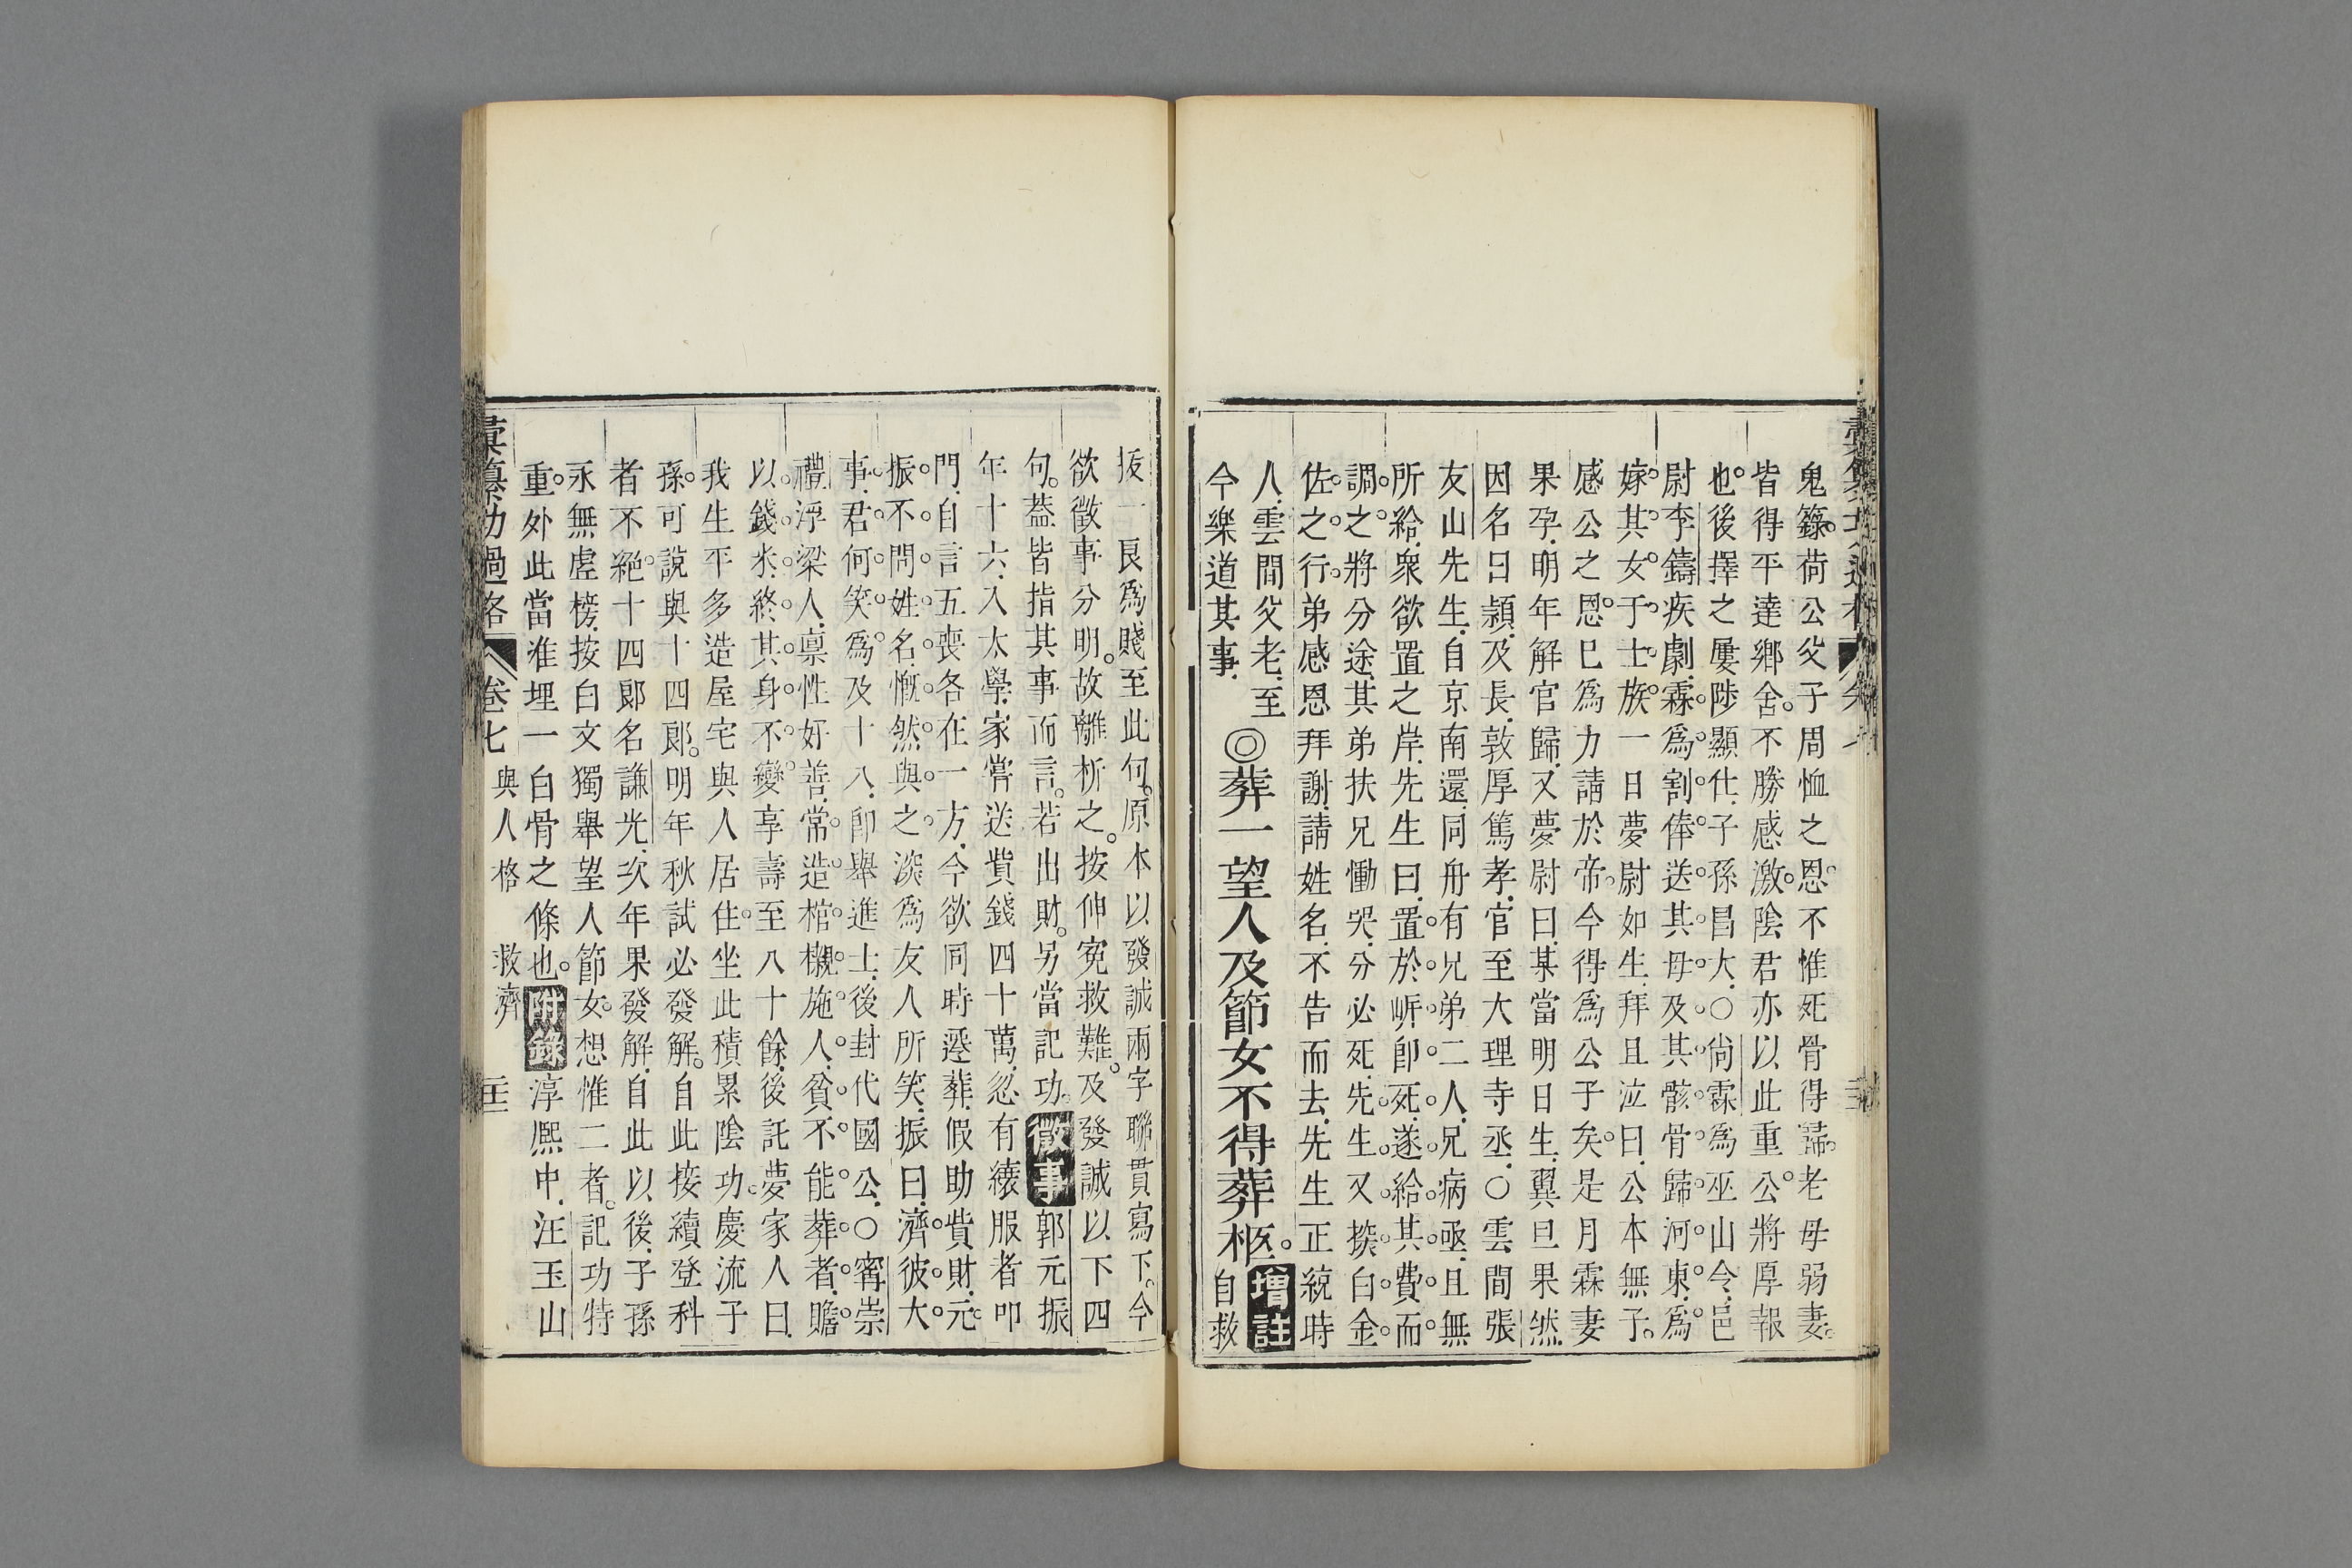 鬼籙。荷公父子周恤之恩。不惟死骨得歸。老母弱妻。
皆得平達鄉舍。不勝感激。陰君亦以此重公。將厚報
也。後擇之屢陟顯仕。子孫昌大。○尙霖爲巫山令。邑
尉李鑄疾劇。霖爲割俸送其母及其骸骨歸河東。爲
嫁其女于士族。一日夢尉如生。拜且泣曰。公本無子。
感公之恩。已爲力請於帝。今得爲公子矣。是月霖妻
果孕。明年解官歸。又夢尉曰。某當明日生。翼旦果然。
因名曰潁。及長。敦厚篤孝。官至大理寺丞。○雲間張
友山先生。自京南還。同舟有兄弟二人。兄病亟。且無
所給。衆欲置之岸。先生曰。置於岍卽死。遂給其費。而
調之。將分途。其弟扶兄慟哭。分必死。先生又探白金
佐之行。弟感恩拜謝。請姓名。不告而去。先生正統時
人。雲間父老。至
今樂道其事。
◎葬一望人及節女不得葬柩。增註自救
扳一良爲賤至此句。原本以發誠兩字聯貫寫下。今
欲徵事分明。故離析之。按伸寃救難。及發誠以下四
句。蓋皆指其事而言。若出財。另當記功。徵事郭元振
年十六。入太學。家嘗送貲錢四十萬。忽有縗服者叩
門。自言五喪各在一方。今欲同時遷葬。假助貲財。元
振不問姓名。慨然與之。深爲友人所笑。振曰。濟彼大
事。君何笑爲。及十八。卽舉進士。後封代國公。○甯崇
禮。浮梁人。禀性好善。常造棺櫬施人。貧不能葬者。贍
以錢米。終其身不變。享壽至八十餘。後託夢家人曰。
我生平多造屋宅與人居住。坐此積累陰功。慶流子
孫。可說與十四郞。明年秋試必發解。自此接續登科
者不絕。十四郞名謙光。次年果發解。自此以後。子孫
永無虛榜。按白文獨舉望人節女。想惟二者。記功特
重。外此當准埋一白骨之條也。附錄淳熙中。汪玉山
彙纂功過格 卷七 與人格 救濟